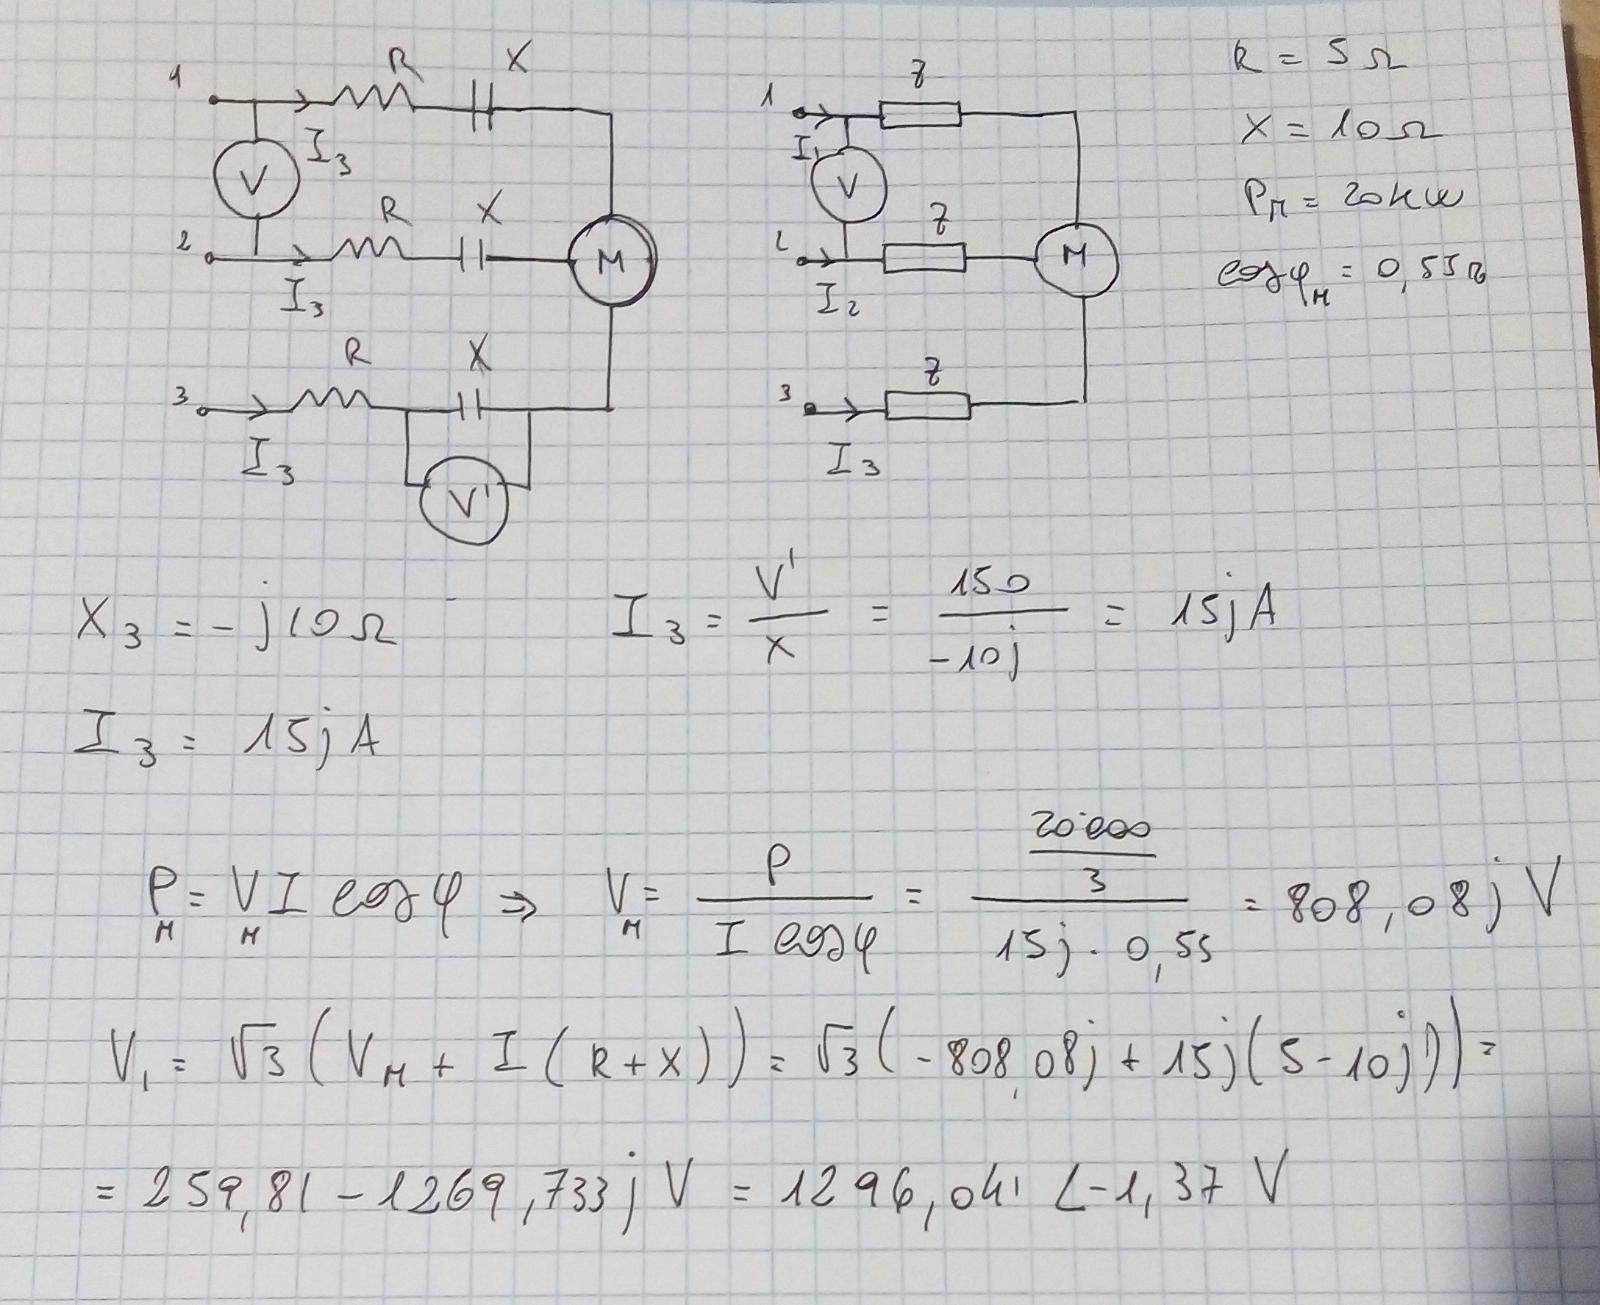 1 R X
I3
V
2 R X
I3
M
3 R X
I3
V'
1 Z
I1
V
2 Z
I2
M
3 Z
I3
R = 5 Ω
X = 10 Ω
PM = 20 kW
cosφM = 0,55
X3 = -j10 Ω
I3 = V'/X = 150/-10j = 15j A
I3 = 15j A
PM = VM I cosφ ⇒ VM = P/(I cosφ) = (20'000/3)/(15j · 0,55) = 808,08j V
V1 = √3 (VM + I (R+X)) = √3 (-808,08j + 15j (5 - 10j)) =
= 259,81 - 1269,733j V = 1296,041 ∠-1,37 V